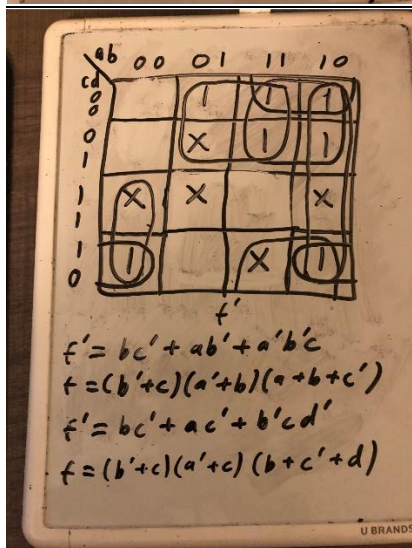 ab 00 01 11 10
cd
00 1 1 1
01 X 1 1
11 X X X
10 1 X 1
f'
f' = bc' + ab' + a'b'c
f = (b'+c)(a'+b)(a+b+c')
f' = bc' + ac' + b'cd'
f = (b'+c)(a'+c)(b+c'+d)
U BRANDS